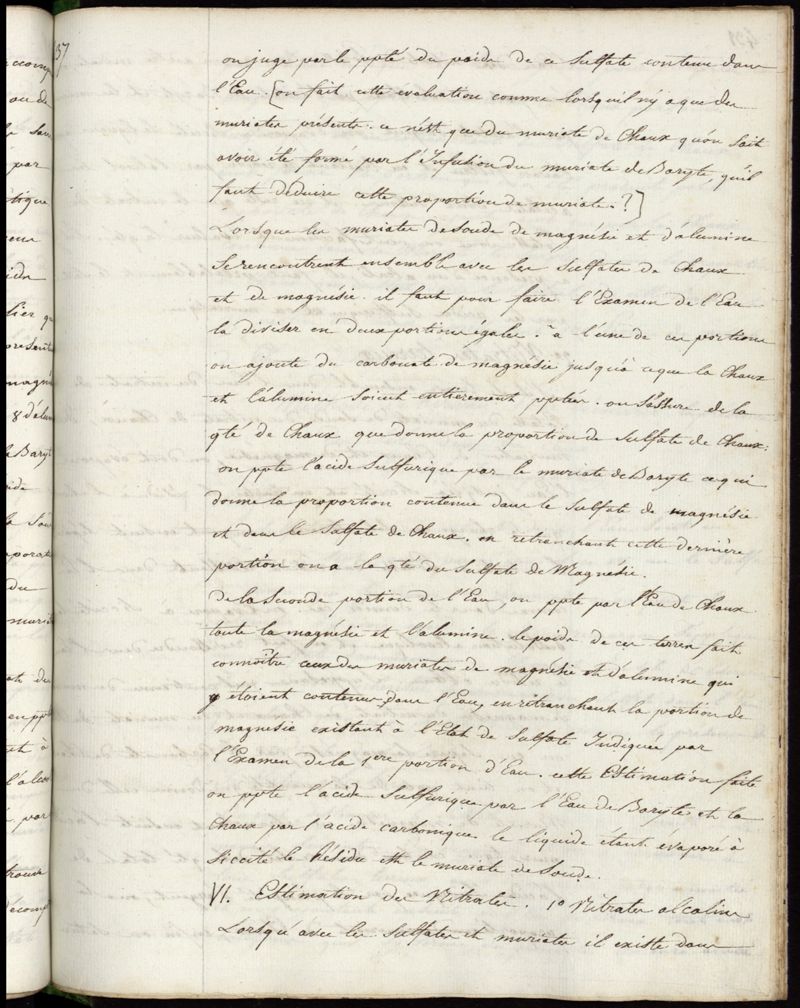 37
on juge par le ppté du poids de ce Sulfate contenu dans
l'Eau. [on fait cette evaluation comme lorsqu'il n'y a que des
muriates présents. ce n'est que du muriate de Chaux qu'on sait
avoir été formé par l'Infusion du muriate de Baryte, qu'il
faut déduire cette proportion de muriate. ?]
Lorsque les muriates de soude de magnésie et d'alumine
se rencontrent ensemble avec les Sulfates de Chaux
et de magnésie. il faut pour faire l'Examen de l'Eau
la diviser en deux portions égales. à l'une de ces portions
on ajoute du carbonate de magnésie jusqu'à ce que la Chaux
et l'alumine soient entièrement pptées. on s'assure de la
qté de Chaux que donne la proportion de Sulfate de Chaux:
on ppte l'acide Sulfurique par le muriate de Baryte ce qui
donne la proportion contenue dans le Sulfate de magnésie
et dans le Sulfate de Chaux. en retranchant cette dernière
portion on a la qté du Sulfate de Magnésie.
de la Seconde portion de l'Eau, on ppte par l'Eau de Chaux
toute la magnésie et l'alumine. le poids de ces terres fait
connoître ceux des muriates de magnésie et d'alumine qui
y étoient contenus dans l'Eau, en retranchant la portion de
magnésie existant à l'Etat de Sulfate Indiquée par
l'Examen de la 1ere portion d'Eau. cette Estimation faite
on ppte l'acide Sulfurique par l'Eau de Baryte et la
Chaux par l'acide carbonique le liquide étant évaporé à
siccité le Résidu est le muriate de Soude.
VI. Estimation des Nitrates. 1° Nitrates alcalins
Lorsqu'avec les Sulfates et muriates il existe dans